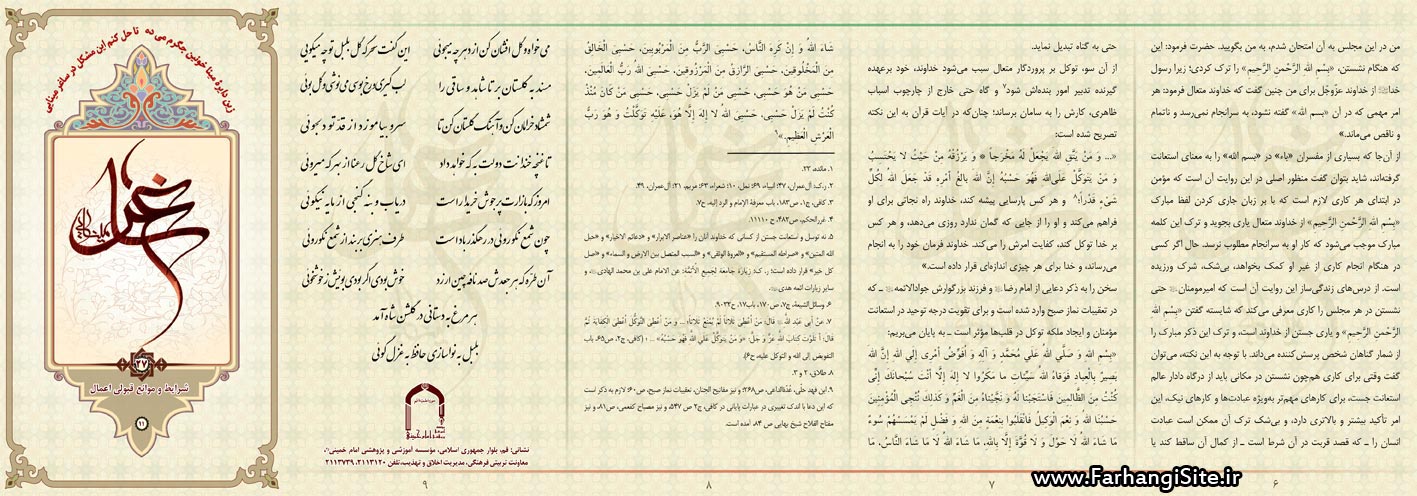 من در این مجلس به آن امتحان شدم، به من بگویید. حضرت فرمود: این
که هنگام نشستن، «بِسْمِ اللهِ الرَّحْمنِ الرَّحیمِ» را ترک کردی؛ زیرا رسول
خدا از خداوند عزّوجَل برای من چنین گفت که خداوند متعال فرمود: هر
امر مهمی که در آن «بسم الله» گفته نشود، به سرانجام نمی‌رسد و ناتمام
و ناقص می‌ماند.»
از آن‌جا که بسیاری از مفسران «باء» در «بسم الله» را به معنای استعانت
گرفته‌اند، شاید بتوان گفت منظور اصلی در این روایت آن است که مؤمن
در ابتدای هر کاری لازم است که با بر زبان جاری کردن لفظ مبارک
«بِسْمِ اللهِ الرَّحْمنِ الرَّحیمِ» از خداوند متعال یاری بجوید و ترک این کلمه
مبارک موجب می‌شود که کار او به سرانجام مطلوب نرسد. حال اگر کسی
در هنگام انجام کاری از غیر او کمک بخواهد، بی‌شک، شرک ورزیده
است. از درس‌های زندگی‌ساز این روایت آن است که امیرمومنان حتی
نشستن در هر مجلس را کاری معرفی می‌کند که شایسته گفتن «بِسْمِ اللهِ
الرَّحْمنِ الرَّحیمِ» و یاری جستن از خداوند است، و ترک این ذکر مبارک را
از شمار گناهان شخص پرسش کننده می‌داند. با توجه به این نکته، می‌توان
گفت وقتی برای کاری هم‌چون نشستن در مکانی باید از درگاه دادار عالم
استعانت جست، برای کارهای مهم‌تر به‌ویژه عبادت‌ها و کارهای نیک، این
امر تأکید بیشتر و بالاتری دارد، و بی‌شک ترک آن ممکن است عبادت
انسان را ـ که قصد قربت در آن شرط است ـ از کمال آن ساقط کند یا
۶
حتی به گناه تبدیل نماید.
از آن سو، توکل بر پروردگار متعال سبب می‌شود خداوند، خود برعهده
گیرنده تدبیر امور بنده‌اش شود۷ و گاه حتی خارج از چارچوب اسباب
ظاهری، کارش را به سامان برساند؛ چنان‌که در آیات قرآن به این نکته
تصریح شده است:
«... وَ مَنْ یَتَّقِ اللهَ یَجْعَلْ لَهُ مَخْرَجاً * وَ یَرْزُقْهُ مِنْ حَیْثُ لا یَحْتَسِبُ
وَ مَنْ یَتَوَکَّلْ عَلَی‌اللهِ فَهُوَ حَسْبُهُ إِنَّ اللهَ بالِغُ أَمْرِهِ قَدْ جَعَلَ اللهُ لِکُلِّ
شَیْءٍ قَدْراً؛۸ و هر کس پارسایی پیشه کند، خداوند راه نجاتی برای او
فراهم می‌کند و او را از جایی که گمان ندارد روزی می‌دهد، و هر کس
بر خدا توکل کند، کفایت امرش را می‌کند. خداوند فرمان خود را به انجام
می‌رساند، و خدا برای هر چیزی اندازه‌ای قرار داده است.»
سخن را به ذکر دعایی از امام رضا و فرزند بزرگوارش جوادالائمه ـ که
در تعقیبات نماز صبح وارد شده است و برای تقویت درجه توحید در استعانت
مؤمنان و ایجاد ملکه توکل در قلب‌ها مؤثر است ـ به پایان می‌بریم:
«بِسْمِ اللهِ وَ صَلَّی اللهُ عَلَی مُحَمَّدٍ وَ آلِهِ وَ أُفَوِّضُ أَمْرِی إِلَی اللهِ إِنَّ اللهَ
بَصِیرٌ بِالْعِبادِ فَوَقاهُ اللهُ سَیِّئاتِ ما مَکَرُوا لا إِلهَ إِلَّا أَنْتَ سُبْحانَکَ إِنِّی
کُنْتُ مِنَ الظَّالِمینَ فَاسْتَجَبْنا لَهُ وَ نَجَّیْناهُ مِنَ الْغَمِّ وَ کَذلِکَ نُنْجِی الْمُؤْمِنینَ
حَسْبُنَا اللهُ وَ نِعْمَ الْوَکیلُ فَانْقَلَبُوا بِنِعْمَةٍ مِنَ اللهِ وَ فَضْلٍ لَمْ یَمْسَسْهُمْ سُوءٌ
ما شاءَ اللهُ لا حَوْلَ وَ لا قُوَّةَ إِلَّا بِاللهِ، ما شاءَ اللهُ لا ما شاءَ النَّاسُ، ما
۷
شَاءَ اللهُ وَ إِنْ کَرِهَ النَّاسُ، حَسْبِیَ الرَّبُّ مِنَ الْمَرْبُوبِینَ، حَسْبِیَ الْخَالِقُ
مِنَ الْمَخْلُوقِینَ، حَسْبِیَ الرَّازِقُ مِنَ الْمَرْزُوقِینَ، حَسْبِیَ اللهُ رَبُّ الْعَالَمِینَ،
حَسْبِی مَنْ هُوَ حَسْبِی، حَسْبِی مَنْ لَمْ یَزَلْ حَسْبِی، حَسْبِی مَنْ کَانَ مُنْذُ
کُنْتُ لَمْ یَزَلْ حَسْبِی، حَسْبِیَ اللهُ لا إِلهَ إِلَّا هُوَ، عَلَیْهِ تَوَکَّلْتُ وَ هُوَ رَبُّ
الْعَرْشِ الْعَظِیمِ.»۹
۱. مائده، ۲۳.
۲. ر.ک: آل‌عمران، ۴۷؛ انبیاء، ۶۹؛ نمل، ۱۰؛ شعراء، ۶۳؛ مریم، ۲۱؛ آل‌عمران، ۴۹.
۳. کافی، ج۱، ص۱۸۳، باب معرفة الإمام و الرد إلیه، ح۷.
۴. غررالحکم، ص۴۸۲، ح ۱۱۱۱۰.
۵. نه توسل و استعانت جستن از کسانی که خداوند آنان را «عناصر الابرار» و «دعائم الاخیار» و «حبل
الله المتین» و «صراطه المستقیم» و «العروة الوثقی» و «السبب المتصل بین الارض و السماء» و «اصل
کل خیر» قرار داده است؛ ر. ک: زیارة جامعة لجمیع الأئمّة: عن الامام علی بن محمد الهادی و
سایر زیارات ائمه هدی.
۶. وسائل‌الشیعة، ج۷، ص۱۷۰، باب۱۷، ح۹۰۳۲.
۷. عَنْ أَبِی عَبْدِ اللهِ قَالَ: مَنْ أُعْطِیَ ثَلَاثاً لَمْ یُمْنَعْ ثَلَاثاً: ... وَ مَنْ أُعْطِیَ التَّوَکُّلَ أُعْطِیَ الْکِفَایَةَ ثُمَّ
قَالَ: أَ تَلَوْتَ کِتَابَ اللهِ عَزَّ وَ جَلَّ: «وَ مَنْ یَتَوَکَّلْ عَلَی اللهِ فَهُوَ حَسْبُهُ» ... ؛ (کافی، ج۲، ص۶۵، باب
التفویض إلی الله و التوکل علیه، ح۶).
۸. طلاق، ۲ و ۳.
۹. ابن فهد حلّی، عُدّةالداعی، ص۲۶۸؛ و نیز مفاتیح الجنان، تعقیبات نماز صبح، ص۶۰؛ لازم به ذکر است
که این دعا با اندک تغییری در عبارات پایانی در کافی، ج۲ ص۵۴۷، و نیز مصباح کفعمی، ص۸۱، و نیز
مفتاح الفلاح شیخ بهایی ص ۸۴ آمده است.
۸
می خواه و گل افشان کن از دهر چه می‌جویی
این گفت سحرگه گل بلبل تو چه می‌گویی
مسند به گلستان بر تا شاهد و ساقی را
لب گیری و رخ بوسی می نوشی و گل بویی
شمشاد خرامان کن و آهنگ گلستان کن تا
سرو بیاموزد از قد تو دلجویی
تا غنچه خندانت دولت به که خواهد داد
ای شاخ گل رعنا از بهر که می‌رویی
امروز که بازارت پرجوش خریدار است
دریاب و بنه گنجی از مایه نیکویی
چون شمع نکورویی در رهگذر باد است
طرف هنری بربند از شمع نکورویی
آن طره که هر جعدش صد نافه چین ارزد
خوش بودی اگر بودی بوییش ز خوشخویی
هر مرغ به دستانی در گلشن شاه آمد
بلبل به نواسازی حافظ به غزل گویی
نشانی: قم، بلوار جمهوری اسلامی، مؤسسه آموزشی و پژوهشی امام خمینی،
معاونت تربیتی فرهنگی، مدیریت اخلاق و تهذیب، تلفن ۲۱۱۳۱۲۰، ۲۱۱۳۷۳۹
۹
زین دایرهٔ مینا خونین جگرم می ده تا حل کنم این مشکل در ساغر مینایی
۲۷
شرایط و موانع قبولی اعمال
۱۱
www.FarhangiSite.ir